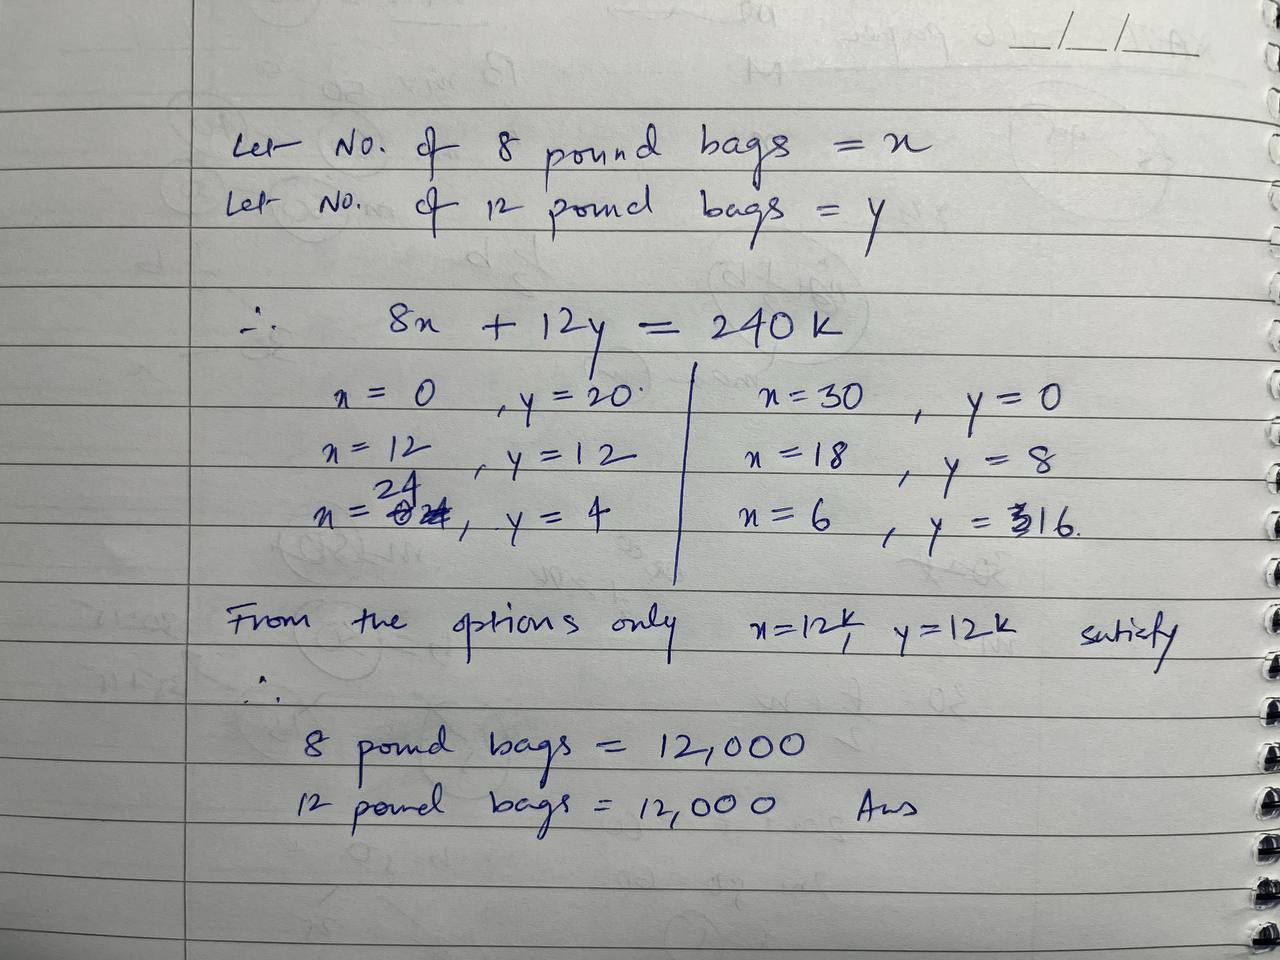 __/__/___
Let No. of 8 pound bags = x
Let No. of 12 pound bags = y
∴ 8x + 12y = 240 k
x = 0 , y = 20. x = 30 , y = 0
x = 12 , y = 12 x = 18 , y = 8
x = 24 , y = 4 x = 6 , y = 16.
From the options only x=12k, y=12k satisfy
∴
8 pound bags = 12,000
12 pound bags = 12,000 Ans